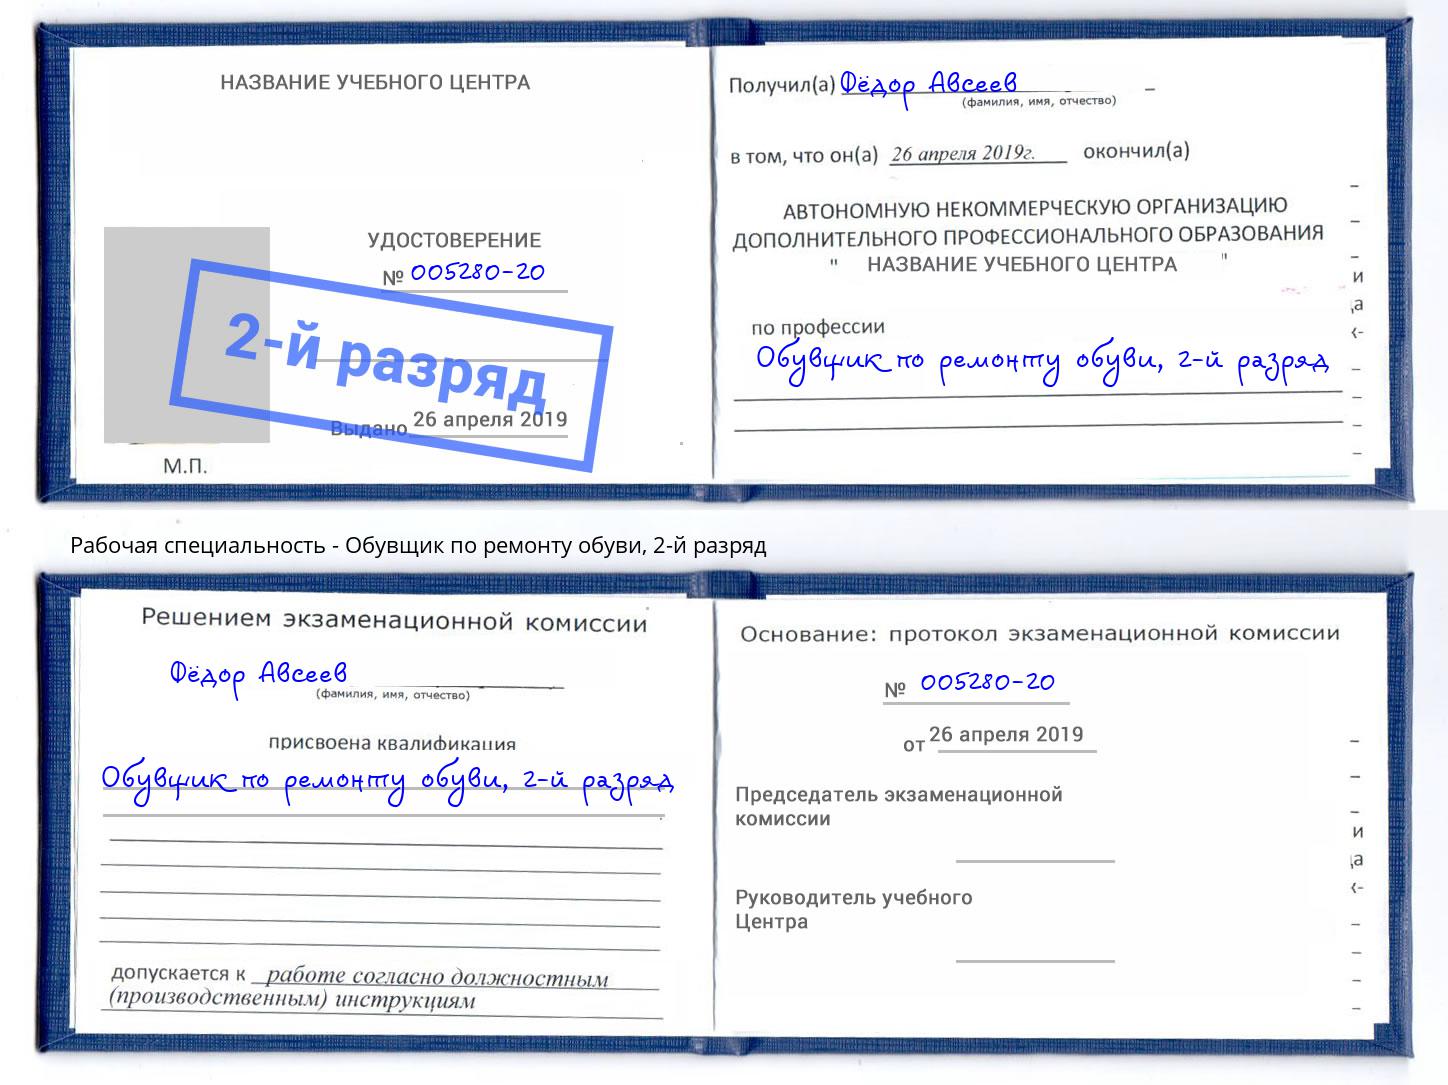 НАЗВАНИЕ УЧЕБНОГО ЦЕНТРА
УДОСТОВЕРЕНИЕ
№ 005280-20
2-й разряд
Выдано 26 апреля 2019
М.П.
Получил(а) Фёдор Авсеев
(фамилия, имя, отчество)
в том, что он(а) 26 апреля 2019г. окончил(а)
АВТОНОМНУЮ НЕКОММЕРЧЕСКУЮ ОРГАНИЗАЦИЮ
ДОПОЛНИТЕЛЬНОГО ПРОФЕССИОНАЛЬНОГО ОБРАЗОВАНИЯ
" НАЗВАНИЕ УЧЕБНОГО ЦЕНТРА "
по профессии
Обувщик по ремонту обуви, 2-й разряд
Рабочая специальность - Обувщик по ремонту обуви, 2-й разряд
Решением экзаменационной комиссии
Фёдор Авсеев
(фамилия, имя, отчество)
присвоена квалификация
Обувщик по ремонту обуви, 2-й разряд
допускается к работе согласно должностным
(производственным) инструкциям
Основание: протокол экзаменационной комиссии
№ 005280-20
от 26 апреля 2019
Председатель экзаменационной
комиссии
Руководитель учебного
Центра